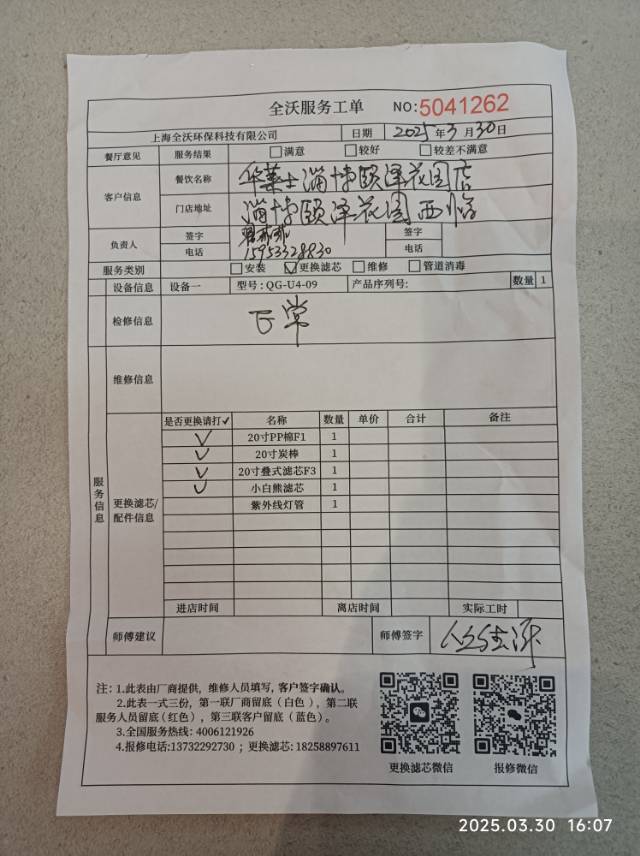 全沃服务工单 NO:5041262
上海全沃环保科技有限公司 日期 2025年3月30日
餐厅意见 服务结果 满意 较好 较差不满意
客户信息 餐饮名称 华莱士淄博颐泽花园店
门店地址 淄博颐泽花园西临
负责人 签字 签字
电话 15953328830 电话
服务类别 安装 ✓更换滤芯 维修 管道消毒
设备信息 设备一 型号:QG-U4-09 产品序列号: 数量 1
检修信息 正常
维修信息
服务信息
更换滤芯/配件信息
是否更换请打✓ 名称 数量 单价 合计 备注
✓ 20寸PP棉F1 1
✓ 20寸炭棒 1
✓ 20寸叠式滤芯F3 1
✓ 小白熊滤芯 1
紫外线灯管 1
进店时间 离店时间 实际工时
师傅建议 师傅签字
注:1.此表由厂商提供,维修人员填写,客户签字确认。
2.此表一式三份,第一联厂商留底(白色),第二联
服务人员留底(红色),第三联客户留底(蓝色)。
3.全国服务热线: 4006121926
4.报修电话:13732292730 ; 更换滤芯: 18258897611
更换滤芯微信 报修微信
2025.03.30 16:07